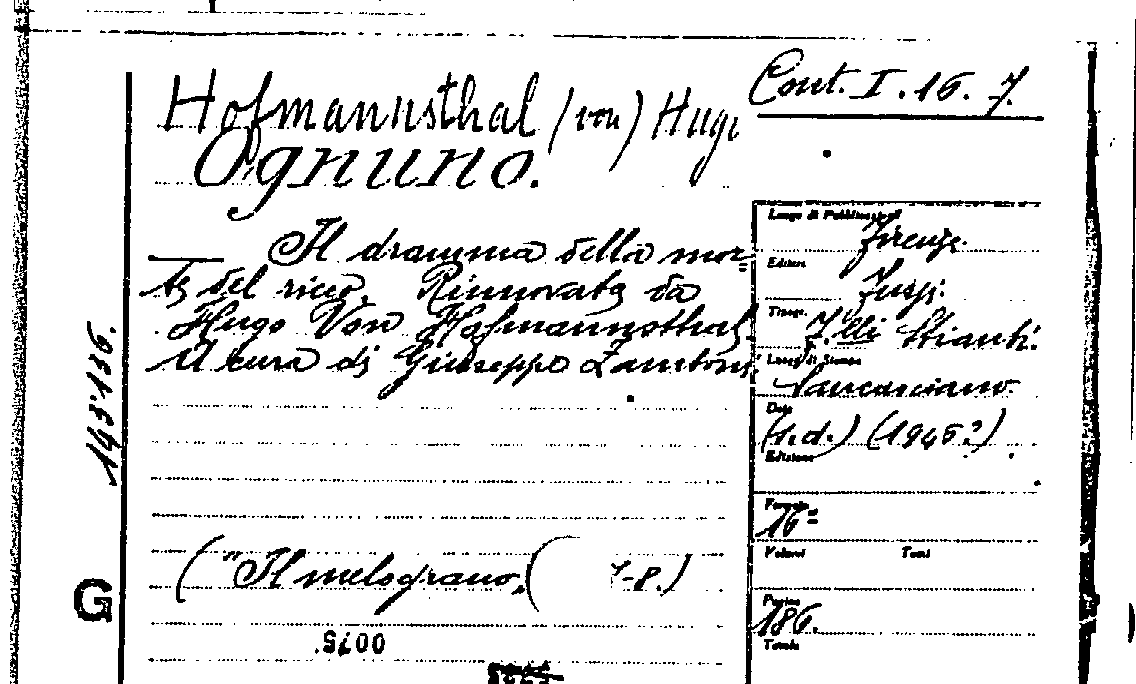 Cont. I. 16. 7.
Hofmannsthal (von) Hugo
Ognuno.
Il dramma della mor=
te del ricco. Rinnovato da
Hugo Von Hofmannsthal.
A cura di Giuseppe Zamboni.
("Il melograno, ( 7-8.)
Luogo di Pubblicazione
Firenze.
Editore
Fussi.
Tipogr.
F.lli Stianti.
Luogo di Stampa
Sancasciano
Data
(s.d.) (1946?)
Edizione
Formato
16=
Volumi Tomi
Pagine
186.
Tavole
143.136.
G